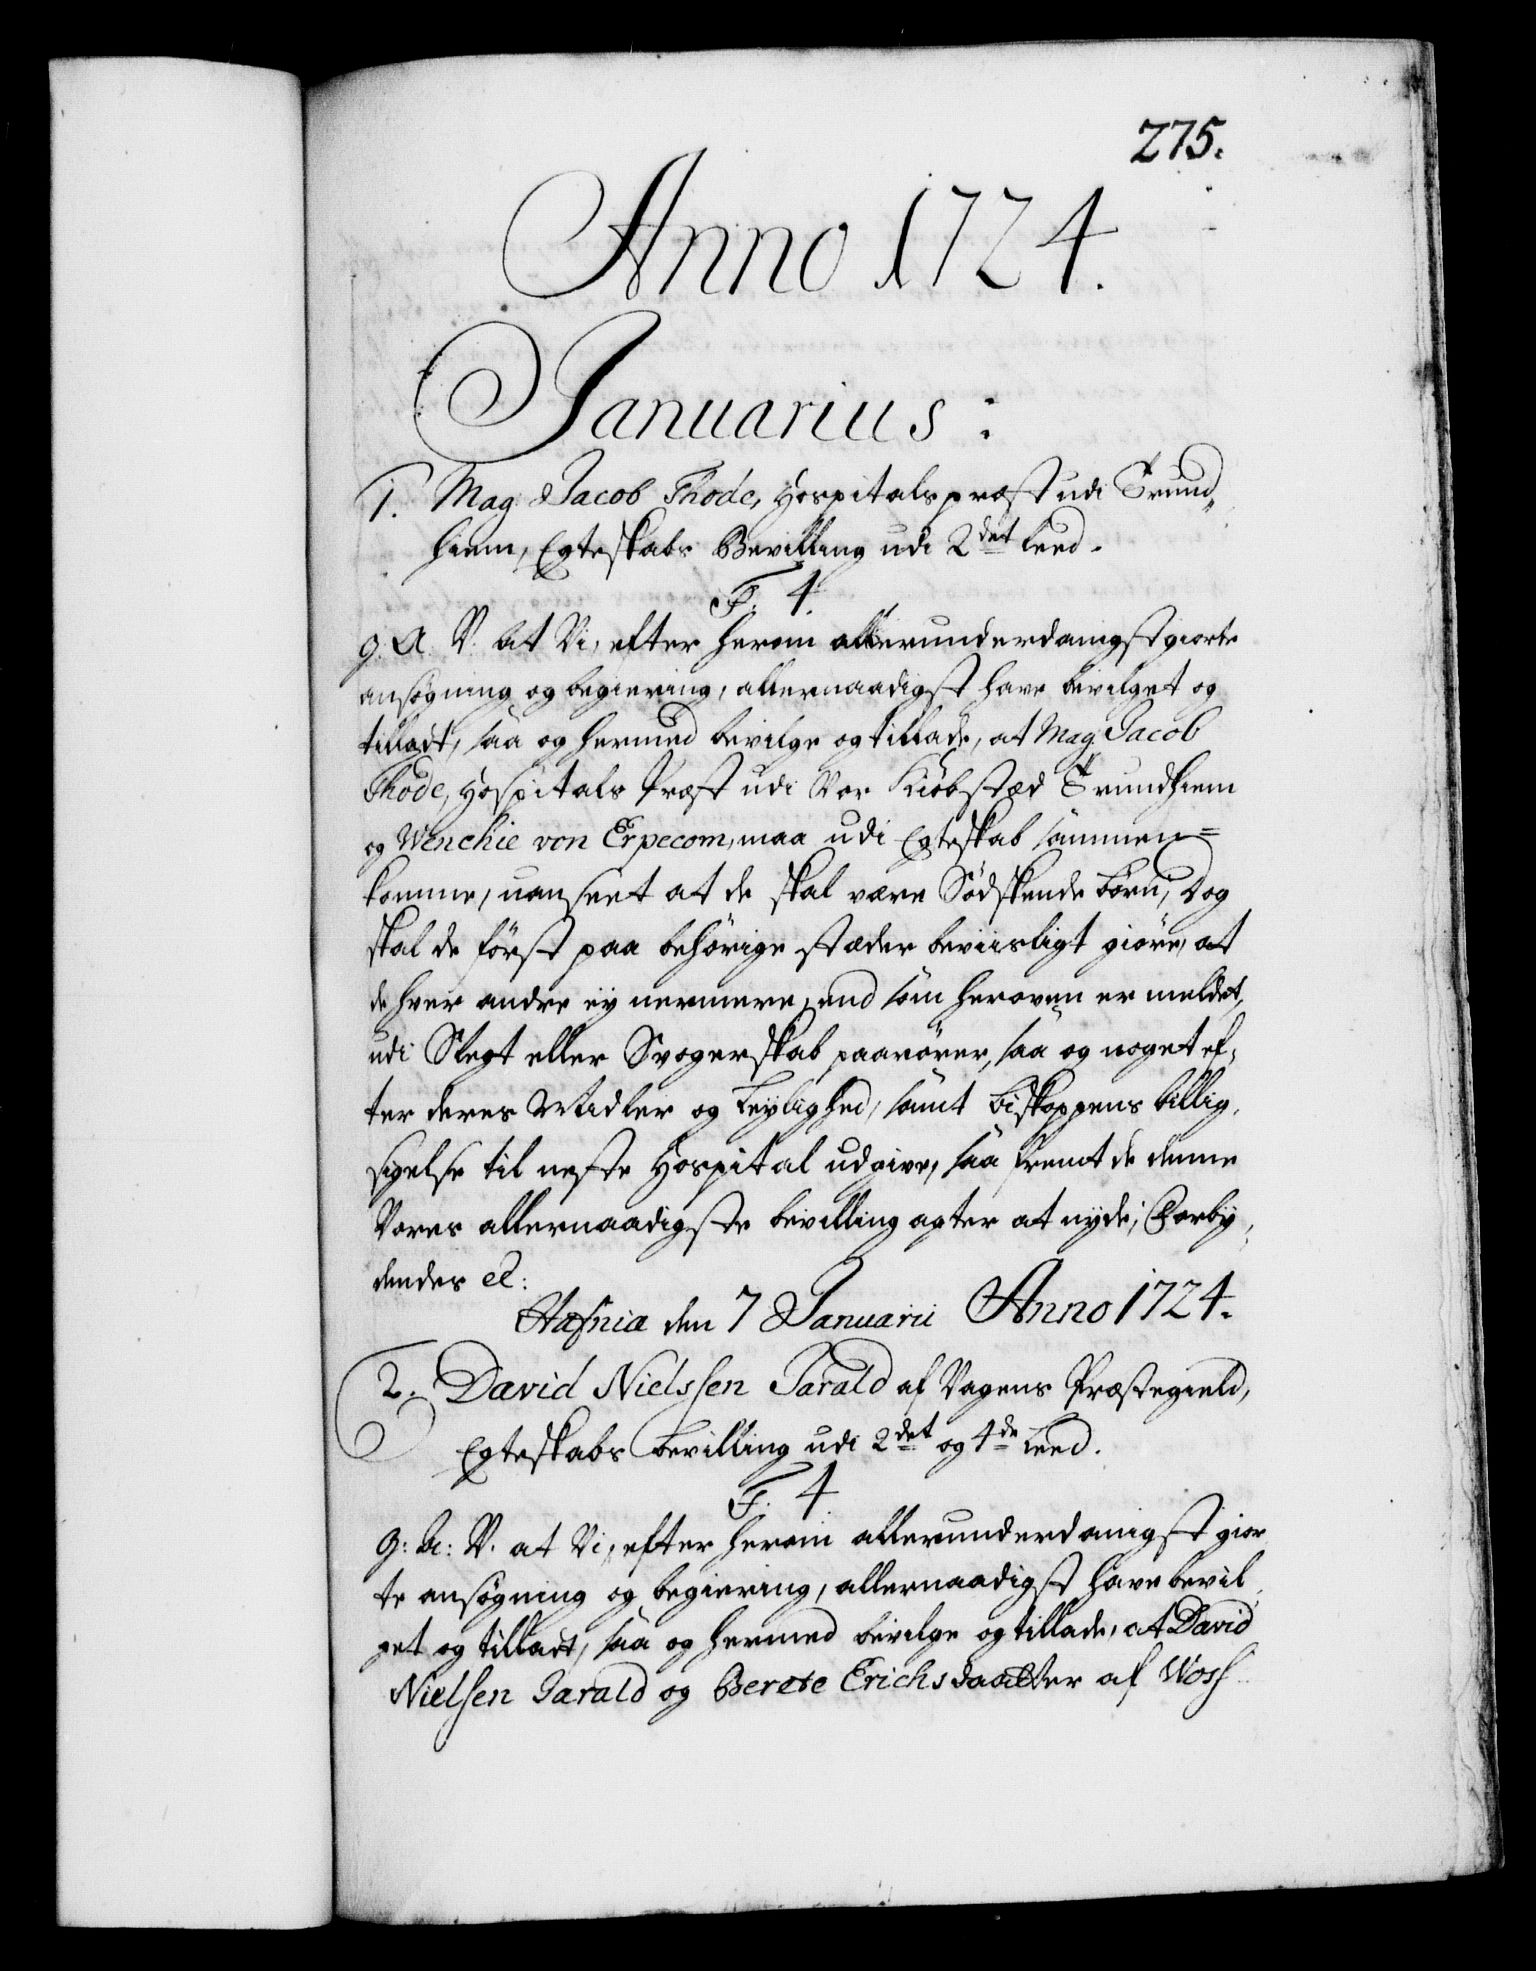 275.
Anno 1724.
Januarius:
1. Mag: Jacob Thode, Hospitals præst udi Trund„
hiem, Egteskabs Bevilling udi 2det Leed.
F. 4.
G. A. V. at Vi, efter herom allerunderdanigst giorte
ansøgning og begiering, allernaadigst have bevilget og
tilladt, saa og hermed bevilge og tillade, at Mag Jacob
Thode, Hospitals Præst udi Vor Kiöbstæd Trundhiem
og Wenchie von Erpecom, maa udi Egteskab sammen=
komme, uanseet at de skal være Södskende börn, Dog
skal de först paa behörige stæder beviisligt giöre, at
de hver andre ey nermere, end som heroven er meldet,
udi Slegt eller Svogerskab paarörer, saa og noget ef„
ter deres Midler og Leylighed, samt Biskoppens billig„
sigelse til neste Hospital udgive, saa fremt de denne
Vores allernaadigste bevilling agter at nyde; Forby„
dendes etc:
Hafniæ den 7 Januarii Anno 1724.
2. David Nielssen Jarald af Vagens Præstegield,
Egteskabs bevilling udi 2det og 4de Leed.
F. 4
G: A: V. at Vi, efter herom allerunderdanigst gior„
te ansøgning og begiering, allernaadigst have bevil„
get og tilladt, saa og hermed bevilge og tillade, at David
Nielsen Jarald og Berete Erichsdaatter af Woss„